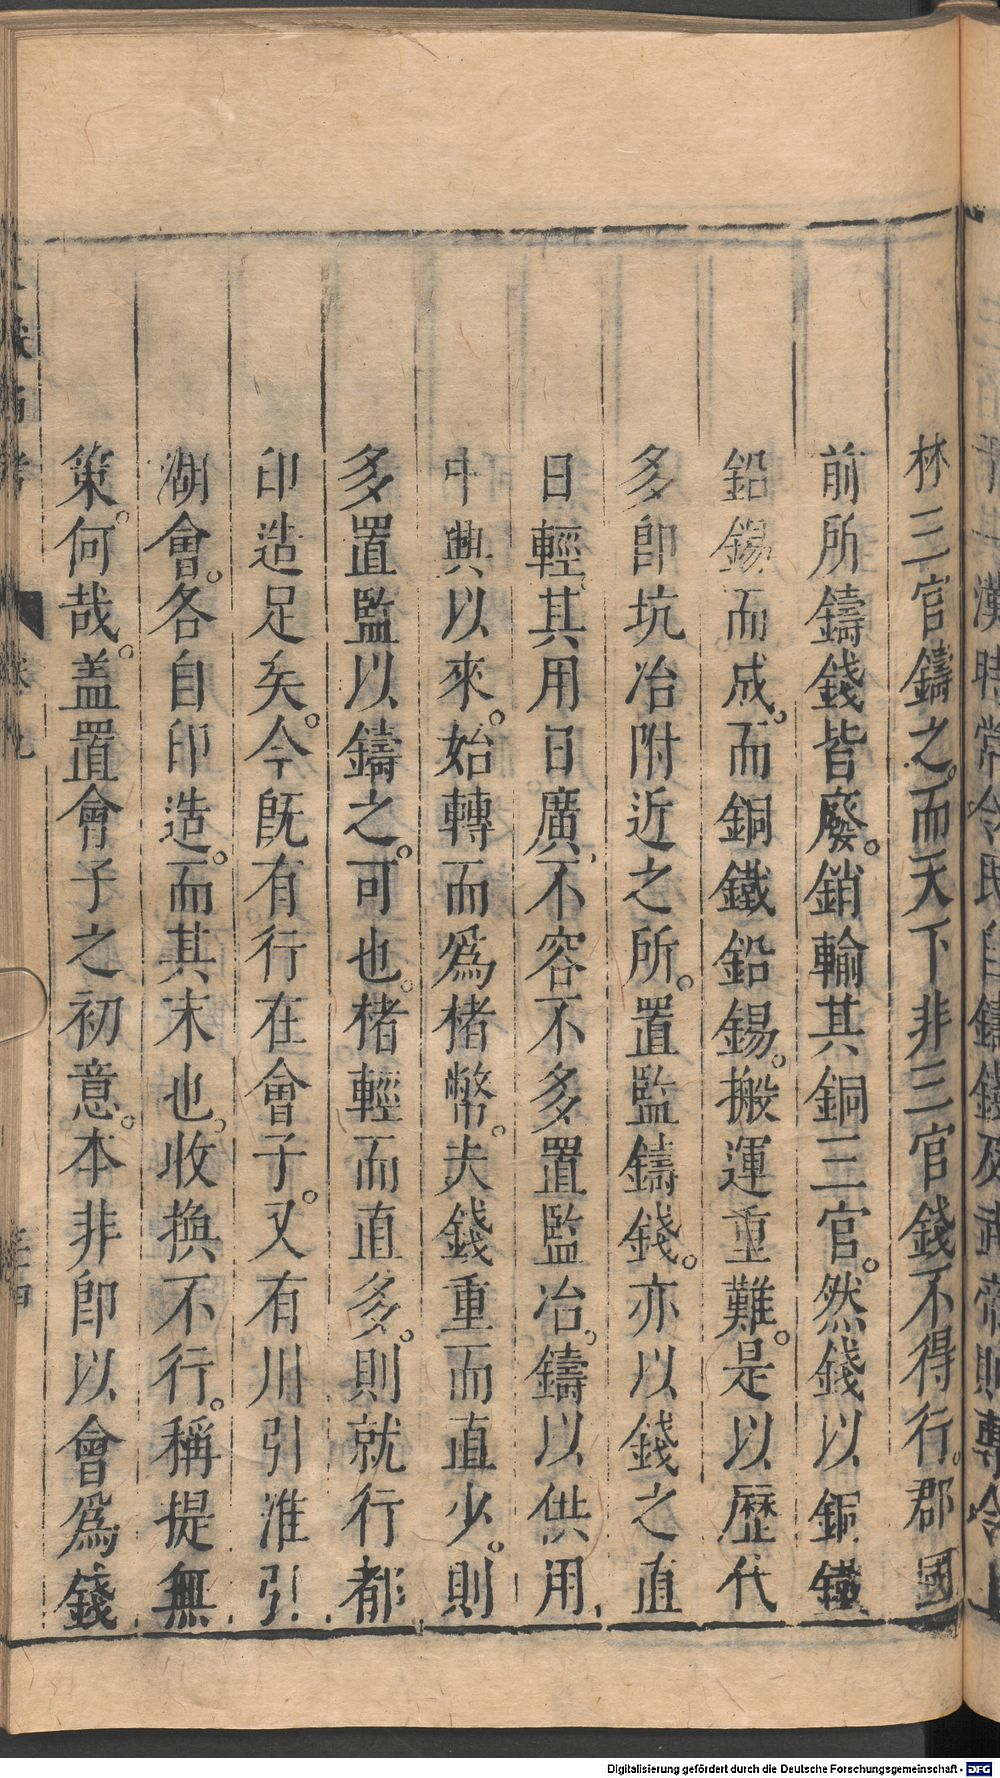 林三官鑄之。而天下非三官錢不得行。郡國
前所鑄錢皆廢。銷輸其銅三官。然錢以銅鐵
鉛錫而成。而銅鐵鉛錫。搬運重難。是以歷代
多即坑冶附近之所。置監鑄錢。亦以錢之直
日輕。其用日廣。不容不多置監冶。鑄以供用、
中興以來。始轉而爲楮幣。夫錢重而直少。則
多置監以鑄之。可也。楮輕而直多。則就行都
印造足矣。今既有行在會子。又有川引淮引、
湖會。各自印造。而其末也、收換不行。稱提無
策。何哉。盖置會子之初意。本非即以會爲錢
Digitalisierung gefördert durch die Deutsche Forschungsgemeinschaft - DFG